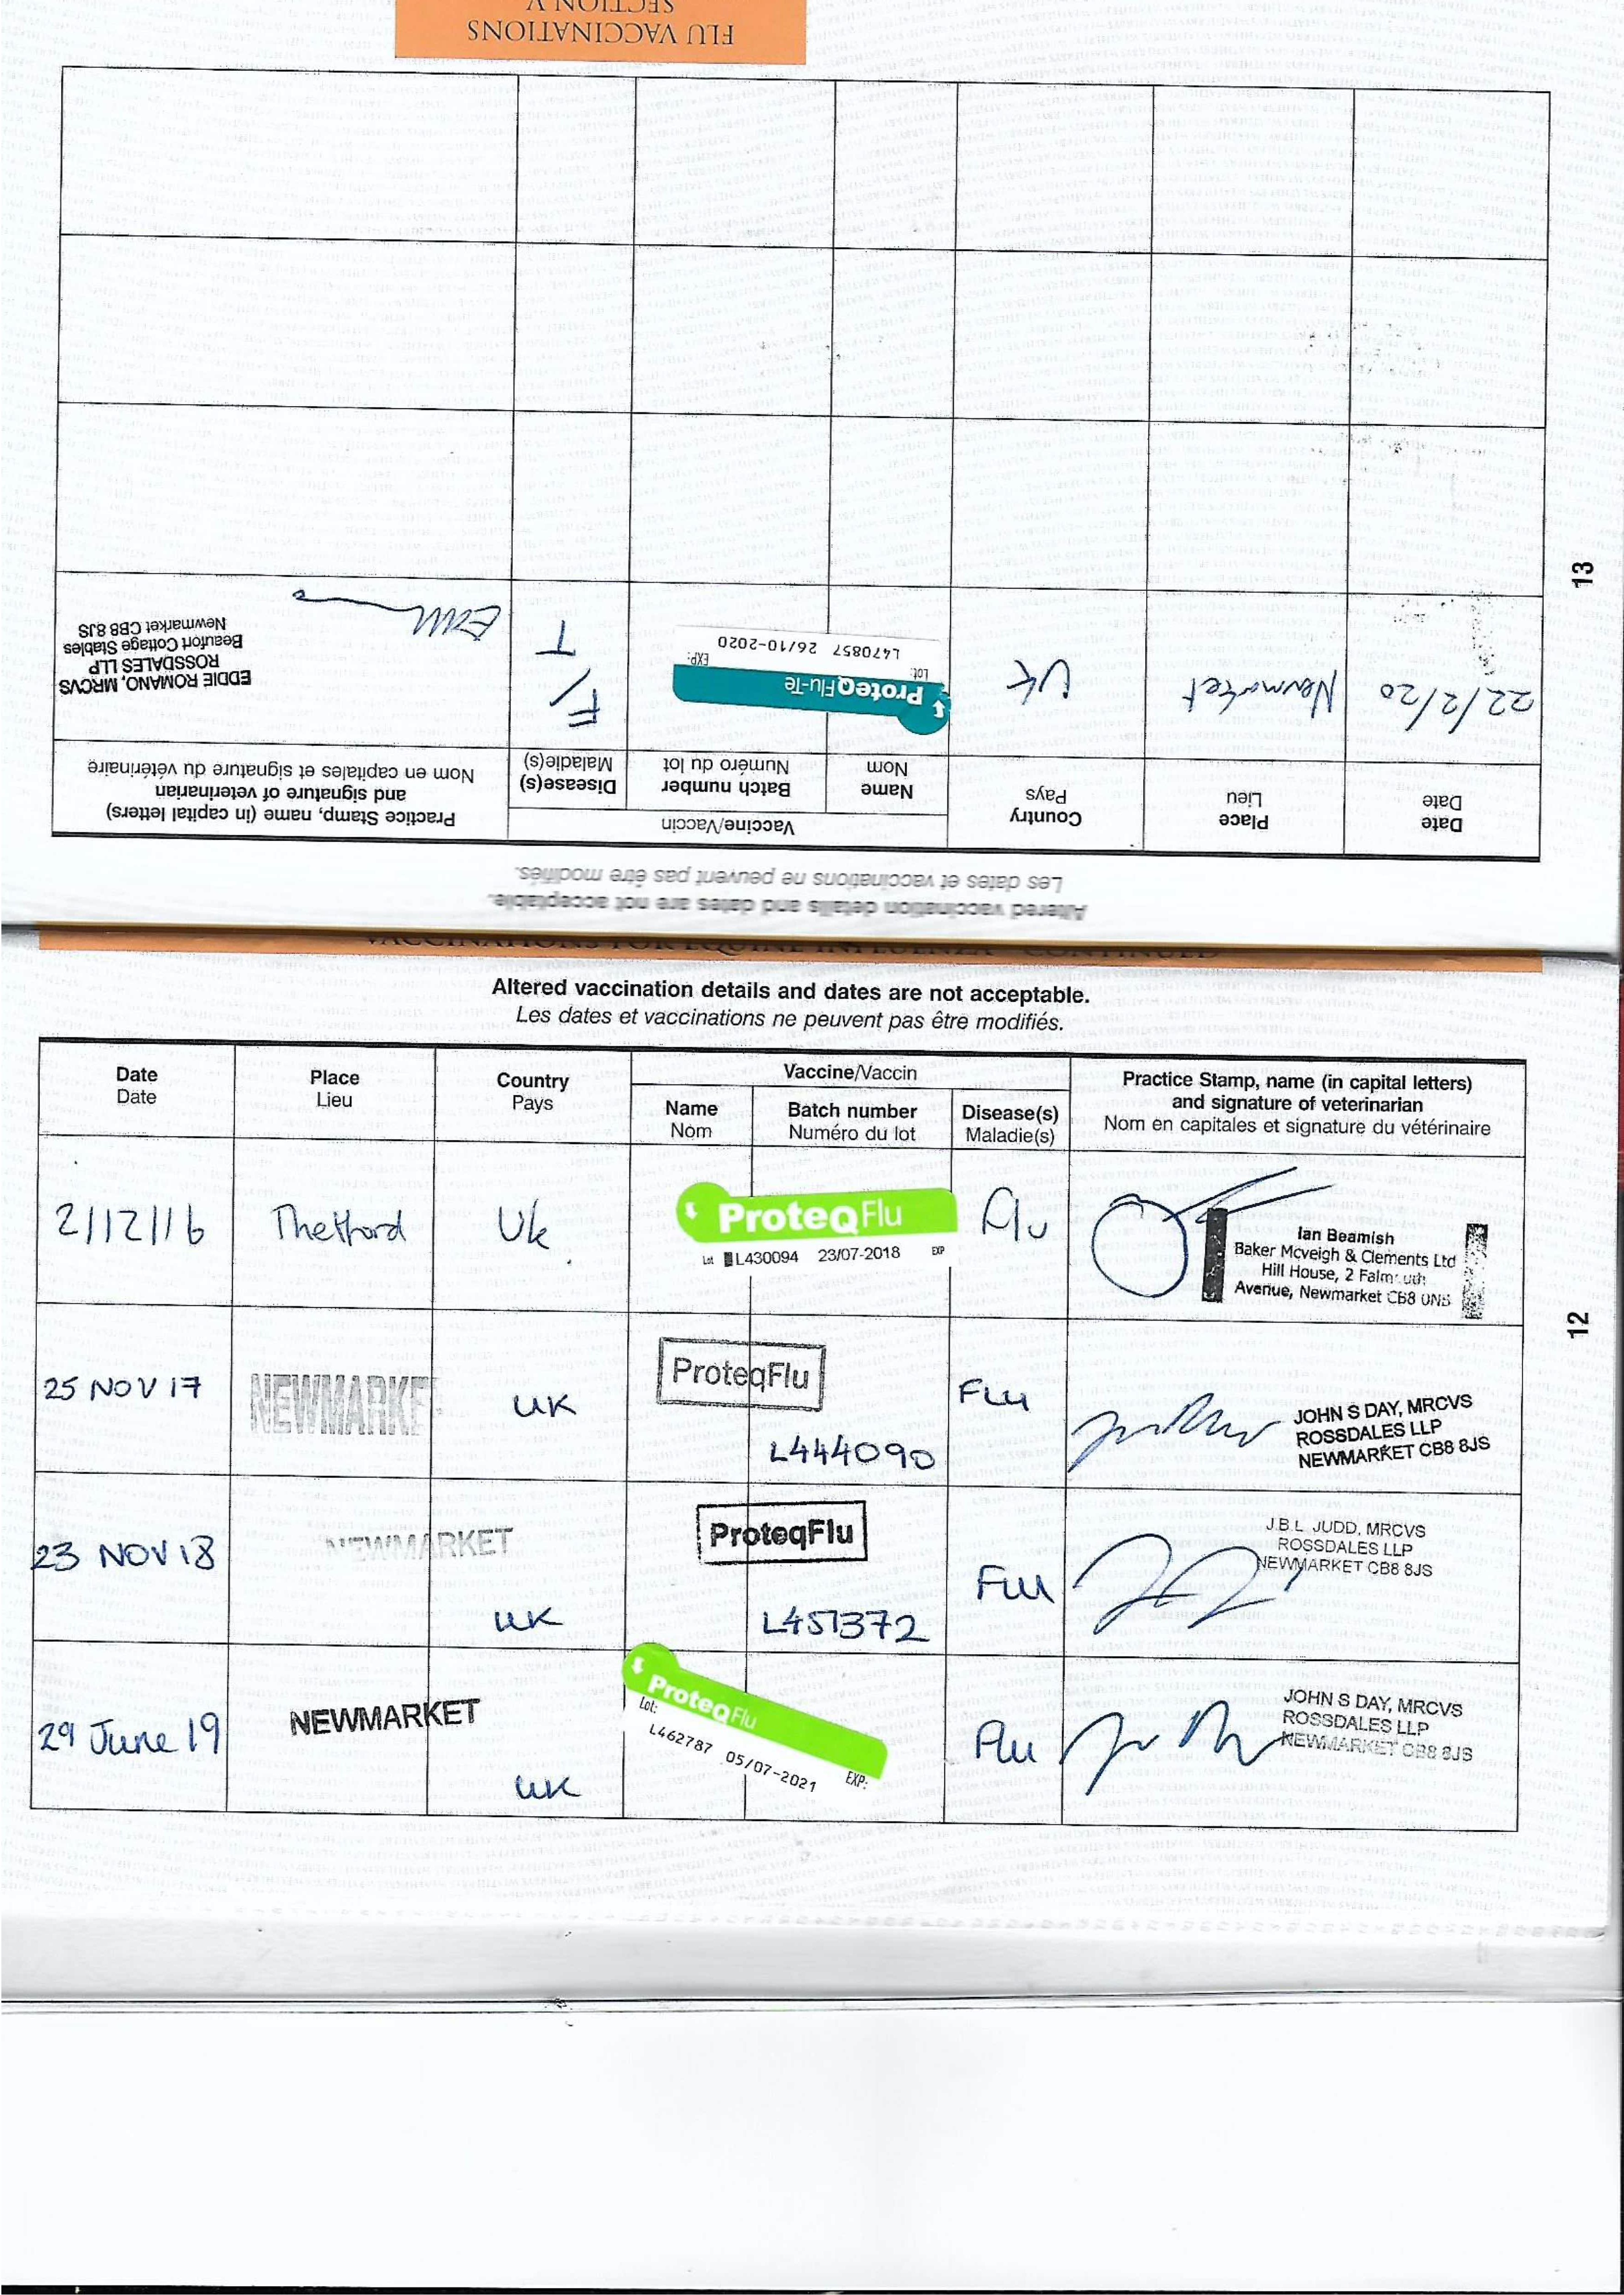 FLU VACCINATIONS
SECTION V
Altered vaccination details and dates are not acceptable.
Les dates et vaccinations ne peuvent pas être modifiés.
Date
Date
Place
Lieu
Country
Pays
Vaccine/Vaccin
Name
Nom
Batch number
Numéro du lot
Disease(s)
Maladie(s)
Practice Stamp, name (in capital letters)
and signature of veterinarian
Nom en capitales et signature du vétérinaire
22/2/20
Newmarket
UK
ProteqFlu-Te
Lot: EXP:
L470857 26/10-2020
F/
T
EDDIE ROMANO, MRCVS
ROSSDALES LLP
Beaufort Cottage Stables
Newmarket CB8 8JS
13
VACCINATIONS FOR EQUINE INFLUENZA - CONTINUED
Altered vaccination details and dates are not acceptable.
Les dates et vaccinations ne peuvent pas être modifiés.
Date
Date
Place
Lieu
Country
Pays
Vaccine/Vaccin
Name
Nom
Batch number
Numéro du lot
Disease(s)
Maladie(s)
Practice Stamp, name (in capital letters)
and signature of veterinarian
Nom en capitales et signature du vétérinaire
2/12/16
Thetford
Uk
ProteqFlu
Lot L430094 23/07-2018 EXP
Flu
Ian Beamish
Baker Mcveigh & Clements Ltd
Hill House, 2 Falmouth
Avenue, Newmarket CB8 0NB
25 NOV 17
NEWMARKE
UK
ProteqFlu
L444090
Flu
JOHN S DAY, MRCVS
ROSSDALES LLP
NEWMARKET CB8 8JS
23 NOV 18
NEWMARKET
UK
ProteqFlu
L451372
Flu
J.B.L. JUDD, MRCVS
ROSSDALES LLP
NEWMARKET CB8 8JS
29 June 19
NEWMARKET
UK
ProteqFlu
Lot:
L462787 05/07-2021 EXP:
Flu
JOHN S DAY, MRCVS
ROSSDALES LLP
NEWMARKET CB8 8JS
12